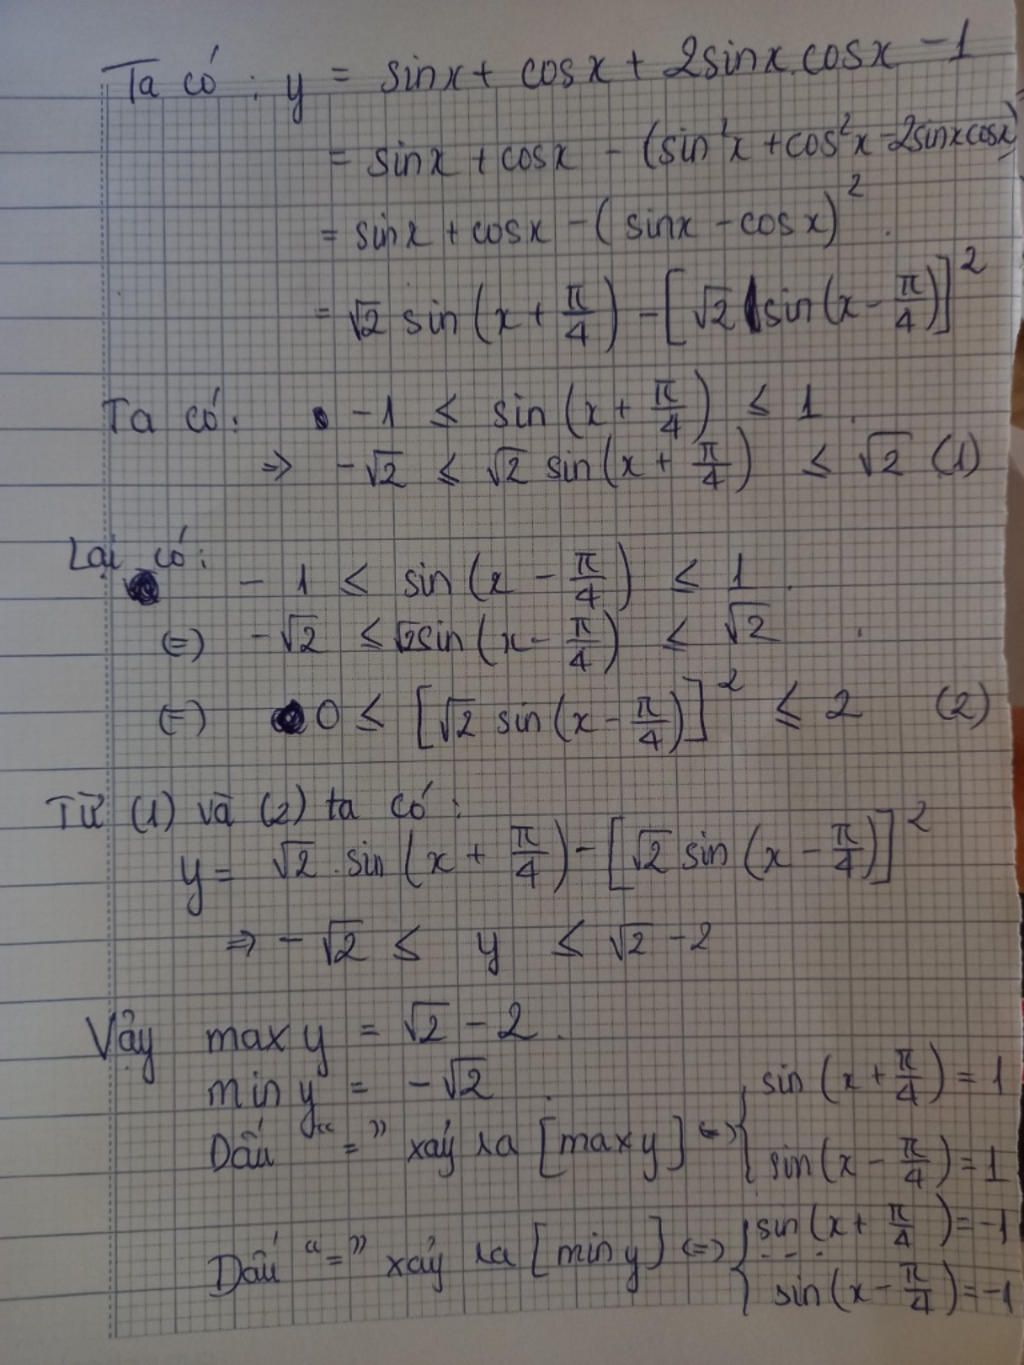 Ta có : y = sinx + cosx + 2sinx.cosx - 1
= sinx + cosx - (sin²x + cos²x - 2sinxcosx)
= sinx + cosx - (sinx - cosx)².
= √2 sin(x + π/4) - [√2 sin(x - π/4)]²
Ta có: • -1 ≤ sin(x + π/4) ≤ 1.
=> -√2 ≤ √2 sin(x + π/4) ≤ √2 (1)
Lại có:
- 1 ≤ sin(x - π/4) ≤ 1.
(=) -√2 ≤ √2sin(x - π/4) ≤ √2.
(=) 0 ≤ [√2 sin(x - π/4)]² ≤ 2 (2)
Từ (1) và (2) ta có :
y = √2.sin(x + π/4) - [√2 sin(x - π/4)]²
=> -√2 ≤ y ≤ √2 - 2
Vậy max y = √2 - 2.
min y = -√2.
Dấu "=" xảy ra [max y] <=> { sin(x + π/4) = 1
sin(x - π/4) = 1
Dấu "=" xảy ra [min y] <=> { sin(x + π/4) = -1
sin(x - π/4) = -1